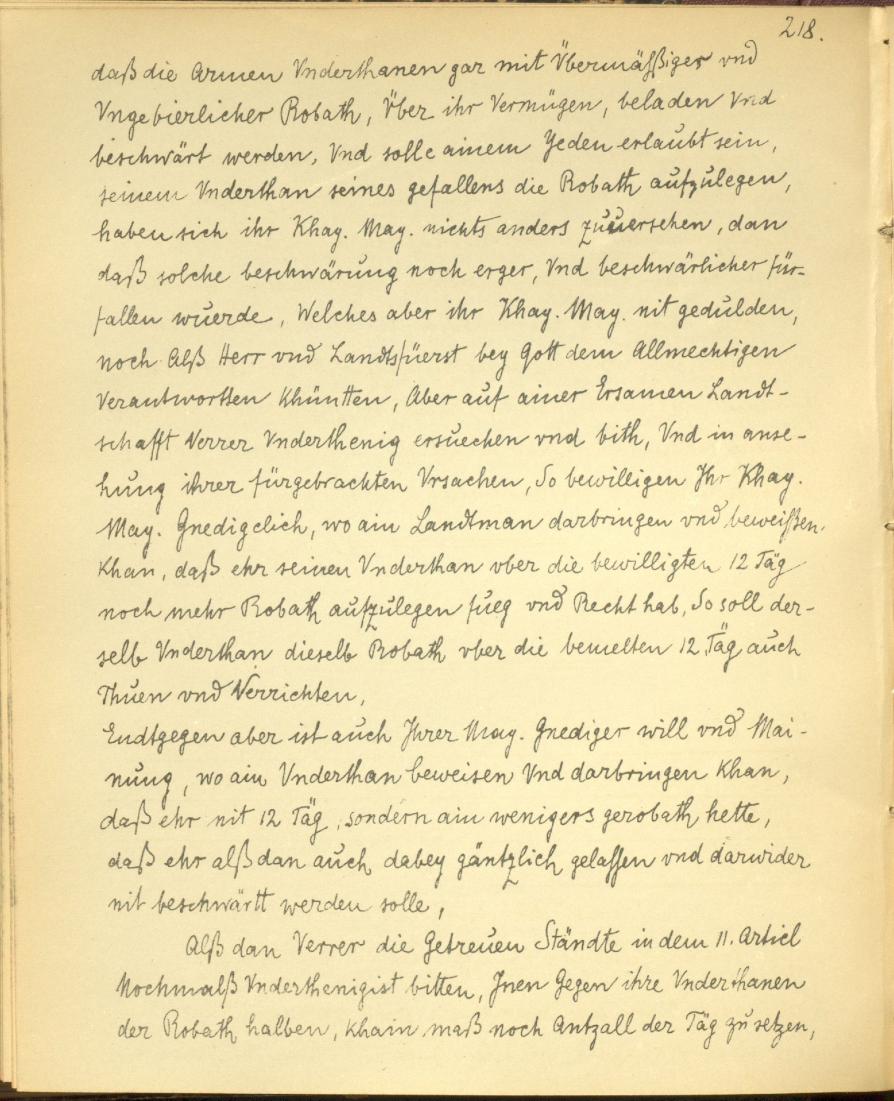 218.
daß die Armen Vnderthanen gar mit Übermäßiger vnd
Vngebierlicher Robath, Über ihr Vermügen, beladen Vnd
beschwärt werden, Vnd solle ainem Yeden erlaubt sein,
seinem Vnderthan seines gefallens die Robath aufzulegen,
haben sich ihr Khay. May. nichts anders zuuersehen, dan
daß solche beschwärung noch erger, Vnd beschwärlicher für-
fallen wuerde, Welches aber ihr Khay. May. nit gedulden,
noch Alß Herr vnd Landtsfüerst bey Gott dem Allmechtigen
Verantwortten Khüntten, Aber auf ainer Ersamen Landt-
schafft Verrer Vnderthenig ersuechen vnd bith, Vnd in anse-
hung ihrer fürgebrachten Vrsachen, So bewilligen Ihr Khay.
May. Gnedigelich, wo ain Landtman darbringen vnd beweißen,
Khan, daß ehr seinen Vnderthan vber die bewilligten 12 Täg
noch mehr Robath aufzulegen fueg vnd Recht hab, So soll der-
selb Vnderthan dieselb Robath vber die bemelten 12 Täg auch
Thuen vnd Verrichten,
Endtgegen aber ist auch Ihrer May. Gnediger will vnd Mai-
nung, wo ain Vnderthan beweisen Vnd darbringen Khan,
daß ehr nit 12 Täg, sondern ain wenigers gerobath hette,
daß ehr alßdan auch dabey gäntzlich gelassen vnd darwider
nit beschwärtt werden solle,
Alß dan Verrer die Getreuen Ständte in dem 11. Articl
Nochmalß Vnderthenigist bitten, Inen Gegen ihre Vnderthanen
der Robath halben, Khain maß noch Antzall der Täg zu setzen,